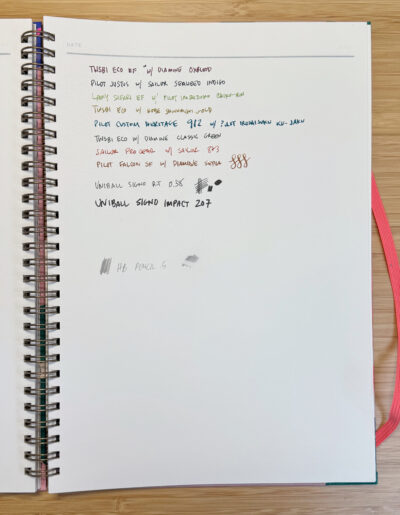 DATE
TWSBI ECO EF W/ DIAMINE OXBLOOD
PILOT JUSTUS W/ SAILOR SEAWEED INDIGO
LAMY SAFARI EF W/ PILOT IROSHIZUKU CHIKU-RIN
TWSBI ECO W/ KOBE
PILOT CUSTOM HERITAGE 912 W/ PILOT IROSHIZUKU KU-JAKU
TWSBI ECO W/ DIAMINE CLASSIC GREEN
SAILOR PRO GEAR W/ SAILOR 873
PILOT FALCON SF W/ DIAMINE
UNIBALL SIGNO RT 0.38
UNIBALL SIGNO IMPACT 207
HB PENCIL .5